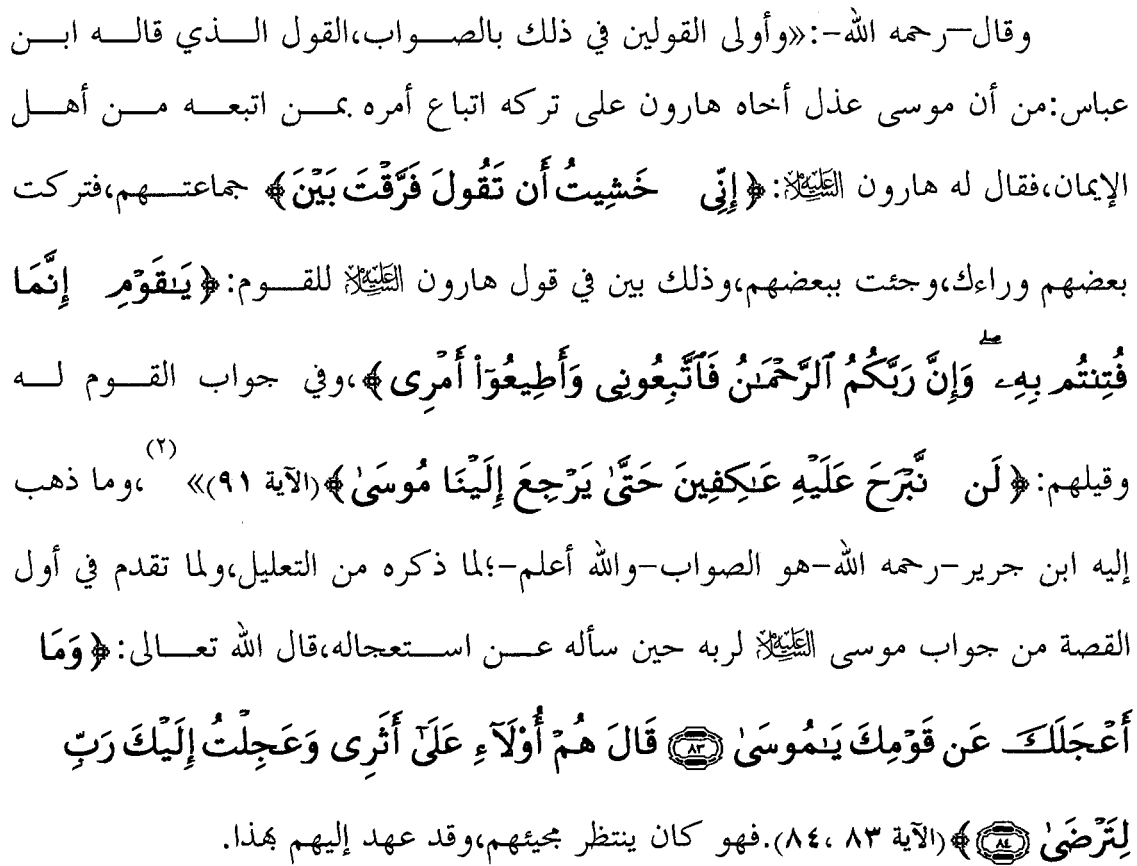 وقال–رحمه الله–:«وأولى القولين في ذلك بالصواب،القول الذي قاله ابن
عباس:من أن موسى عذل أخاه هارون على تركه اتباع أمره بمن اتبعه من أهل
الإيمان،فقال له هارون العليه السلام:﴿إِنِّى خَشِيتُ أَن تَقُولَ فَرَّقْتَ بَيْنَ﴾ جماعتهم،فتركت
بعضهم وراءك،وجئت ببعضهم،وذلك بين في قول هارون العليه السلام للقوم:﴿يَـٰقَوْمِ إِنَّمَا
فُتِنتُم بِهِۦ ۖ وَإِنَّ رَبَّكُمُ ٱلرَّحْمَـٰنُ فَٱتَّبِعُونِى وَأَطِيعُوٓا۟ أَمْرِى﴾،وفي جواب القوم له
وقيلهم:﴿لَن نَّبْرَحَ عَلَيْهِ عَـٰكِفِينَ حَتَّىٰ يَرْجِعَ إِلَيْنَا مُوسَىٰ﴾(الآية ٩١)» (٢)،وما ذهب
إليه ابن جرير–رحمه الله–هو الصواب–والله أعلم–؛لما ذكره من التعليل،ولما تقدم في أول
القصة من جواب موسى العليه السلام لربه حين سأله عن استعجاله،قال الله تعالى:﴿وَمَآ
أَعْجَلَكَ عَن قَوْمِكَ يَـٰمُوسَىٰ ۝٨٣ قَالَ هُمْ أُو۟لَآءِ عَلَىٰٓ أَثَرِى وَعَجِلْتُ إِلَيْكَ رَبِّ
لِتَرْضَىٰ ۝٨٤﴾(الآية ٨٣ ،٨٤).فهو كان ينتظر مجيئهم،وقد عهد إليهم بهذا.